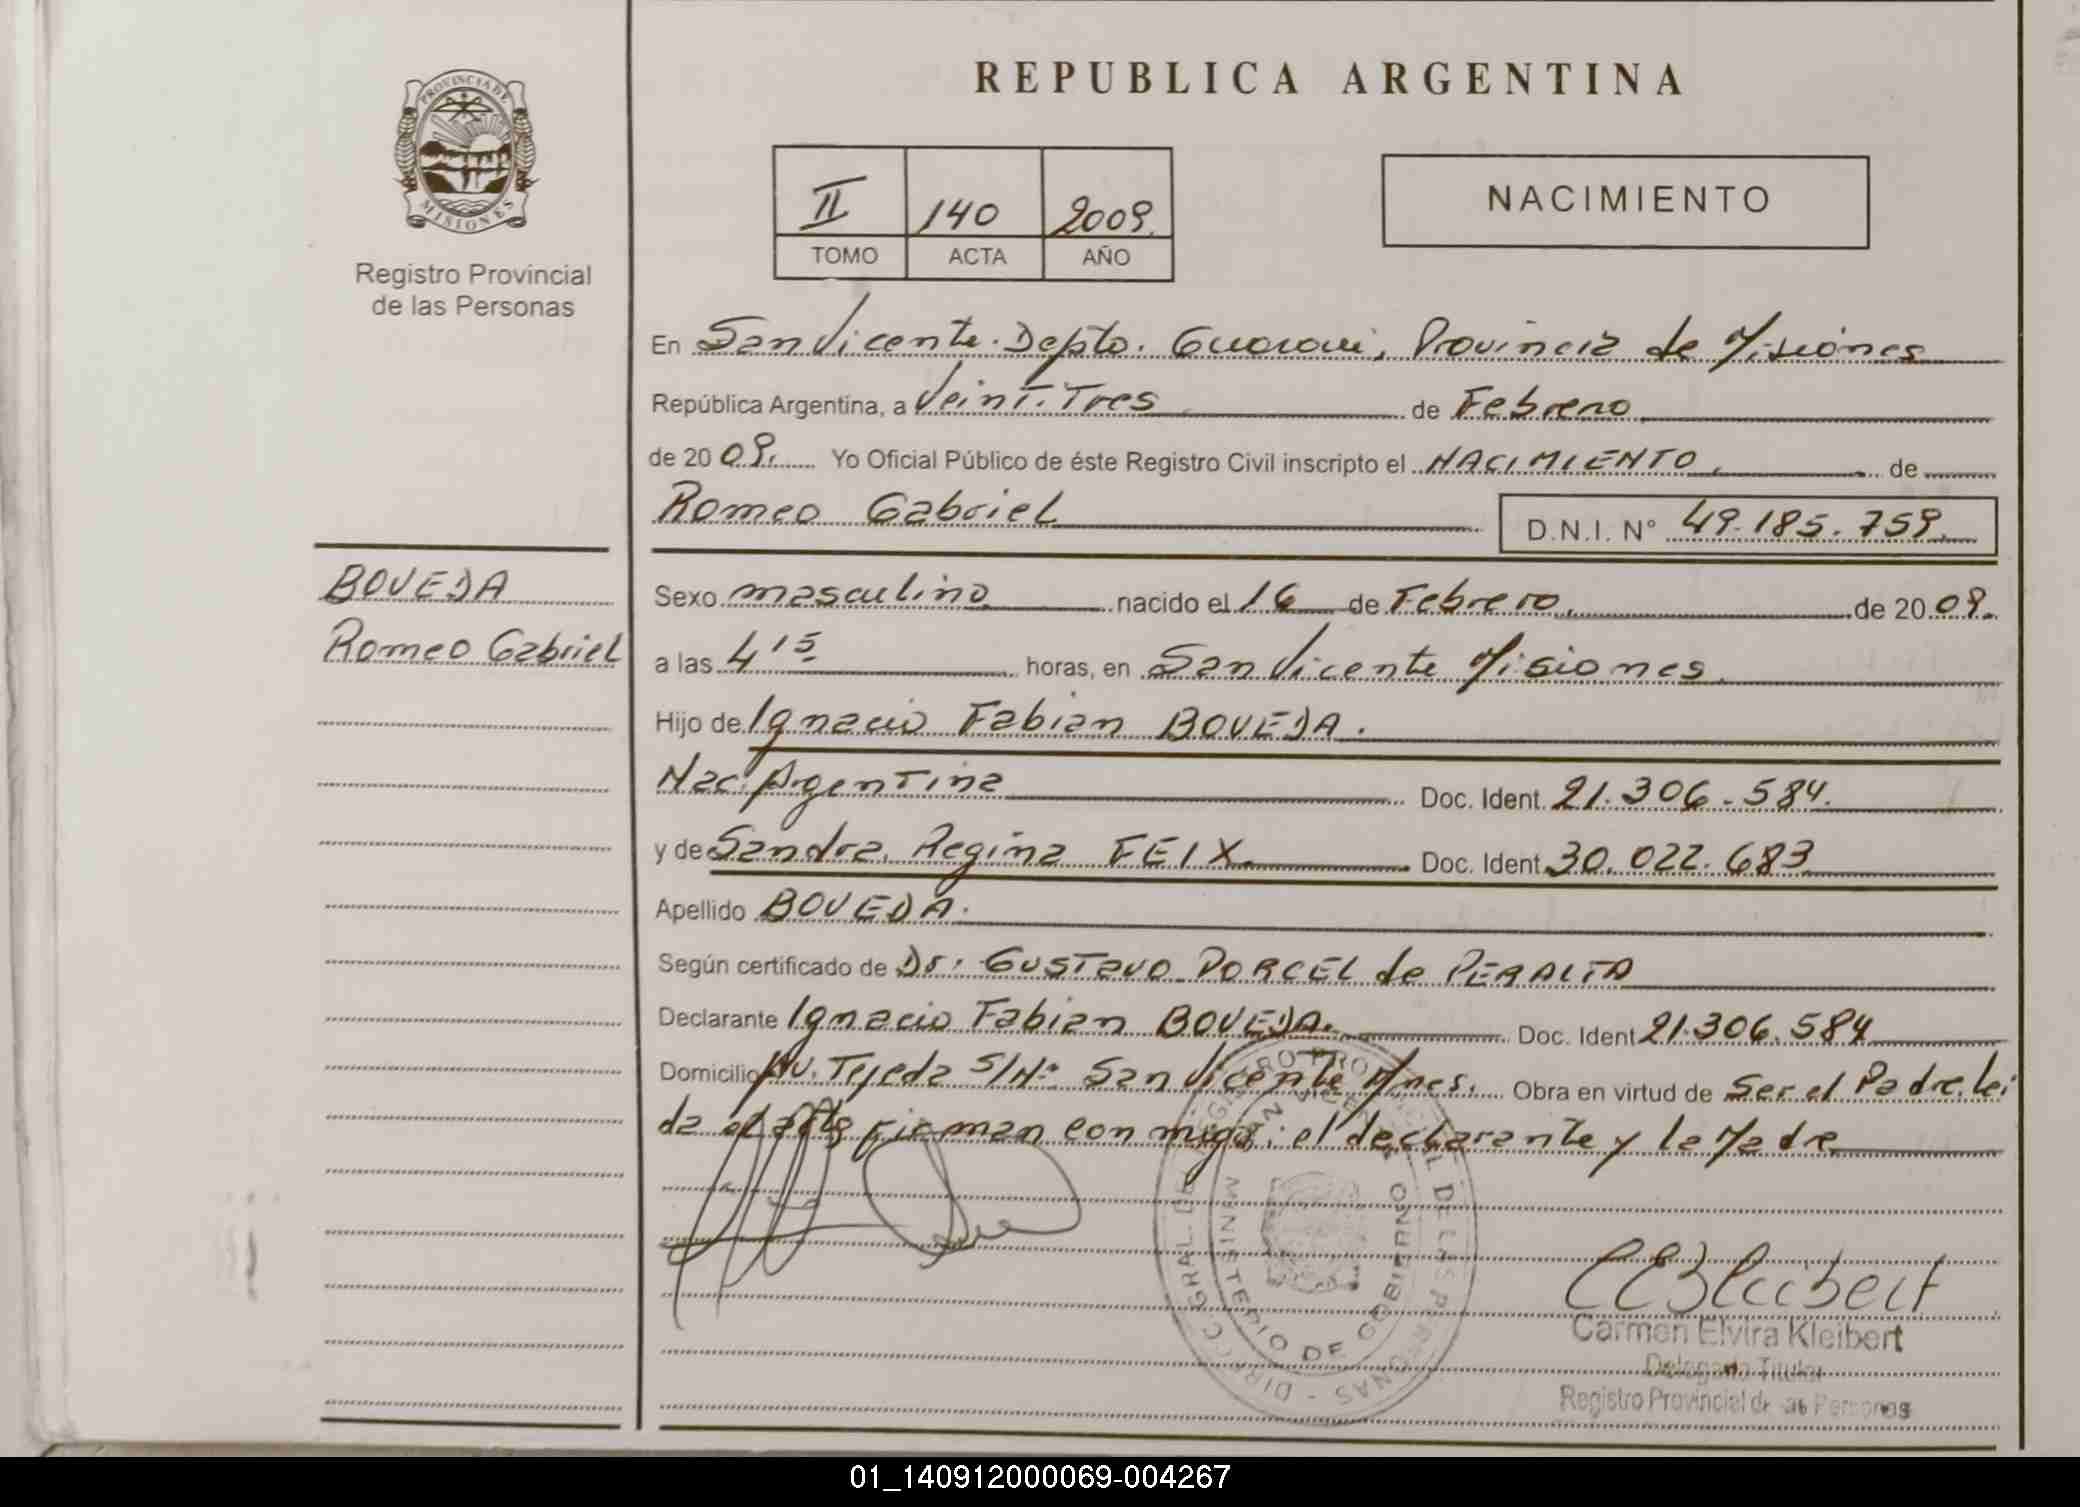 REPUBLICA ARGENTINA
PROVINCIA DE
MISIONES
Registro Provincial
de las Personas
II 140 2009.
TOMO ACTA AÑO
NACIMIENTO
En San Vicente. Depto. Guarani, Provincia de Misiones
República Argentina, a Veinti Tres de Febrero
de 2009. Yo Oficial Público de éste Registro Civil inscripto el NACIMIENTO. de
Romeo Gabriel D.N.I. N° 49.185.759.
BOVEDA
Romeo Gabriel
Sexo masculino nacido el 16 de Febrero. de 2009.
a las 4 15 horas, en San Vicente Misiones.
Hijo de Ignacio Fabian BOVEDA.
Nac. Argentina Doc. Ident. 21.306.584.
y de Sandra Regina FEIX. Doc. Ident. 30.022.683
Apellido BOVEDA.
Según certificado de Dr. GUSTAVO PORCEL de PERALTA
Declarante Ignacio Fabian BOVEDA. Doc. Ident 21.306.584
Domicilio Av. Tejeda S/Nº San Vicente Mnes. Obra en virtud de Ser el Padre. lei
da el acta firman con migo: el declarante y la Madre
DIRECC. GRAL. DE REGISTRO PROVINCIAL DE LAS PERSONAS
SAN VICENTE
MINISTERIO DE GOBIERNO
CEKleibert
Carmen Elvira Kleibert
Delegada Titular
Registro Provincial de las Personas
01_140912000069-004267